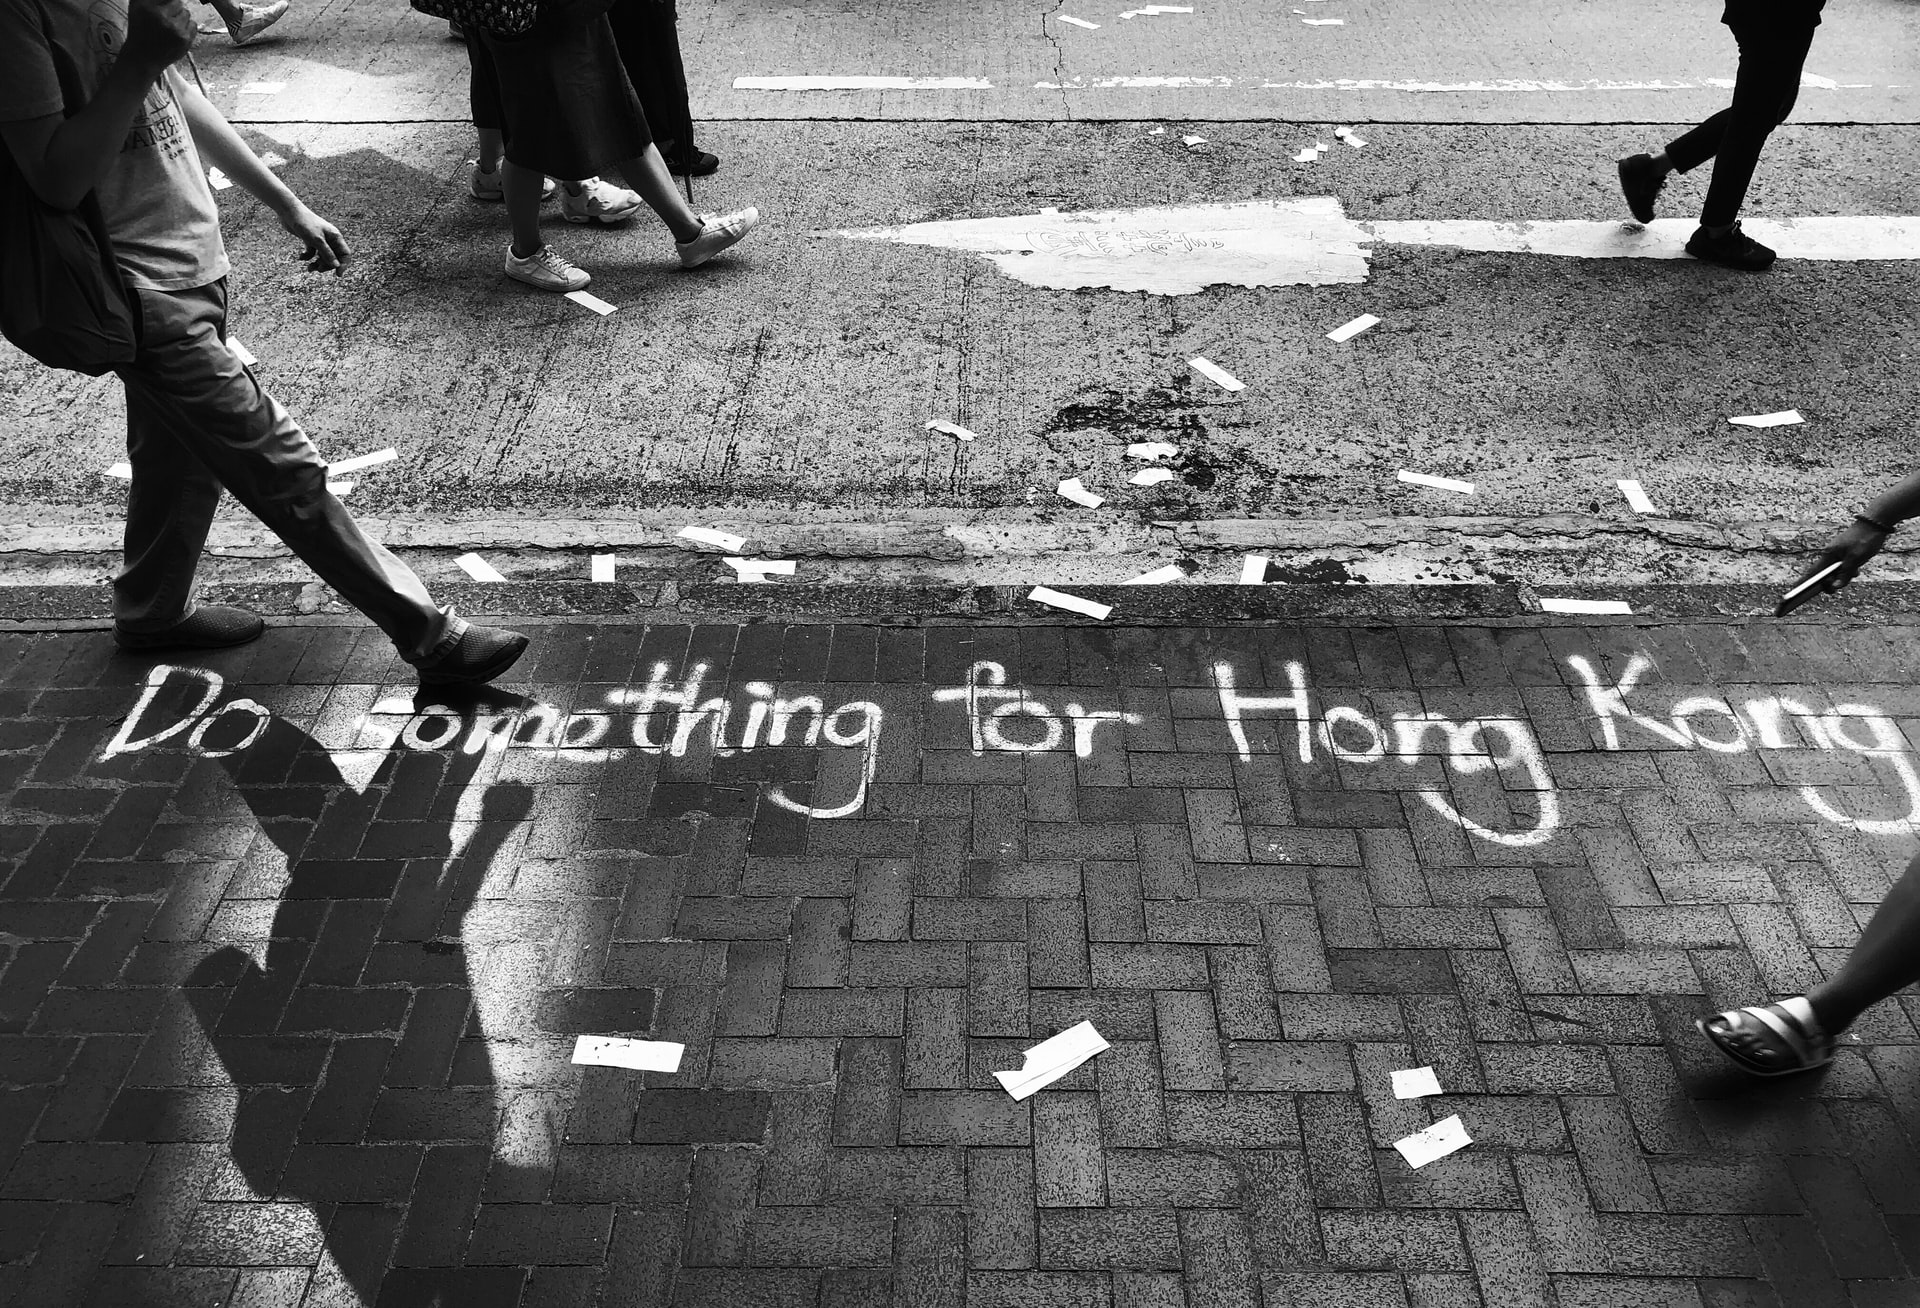 Do something for Hong Kong